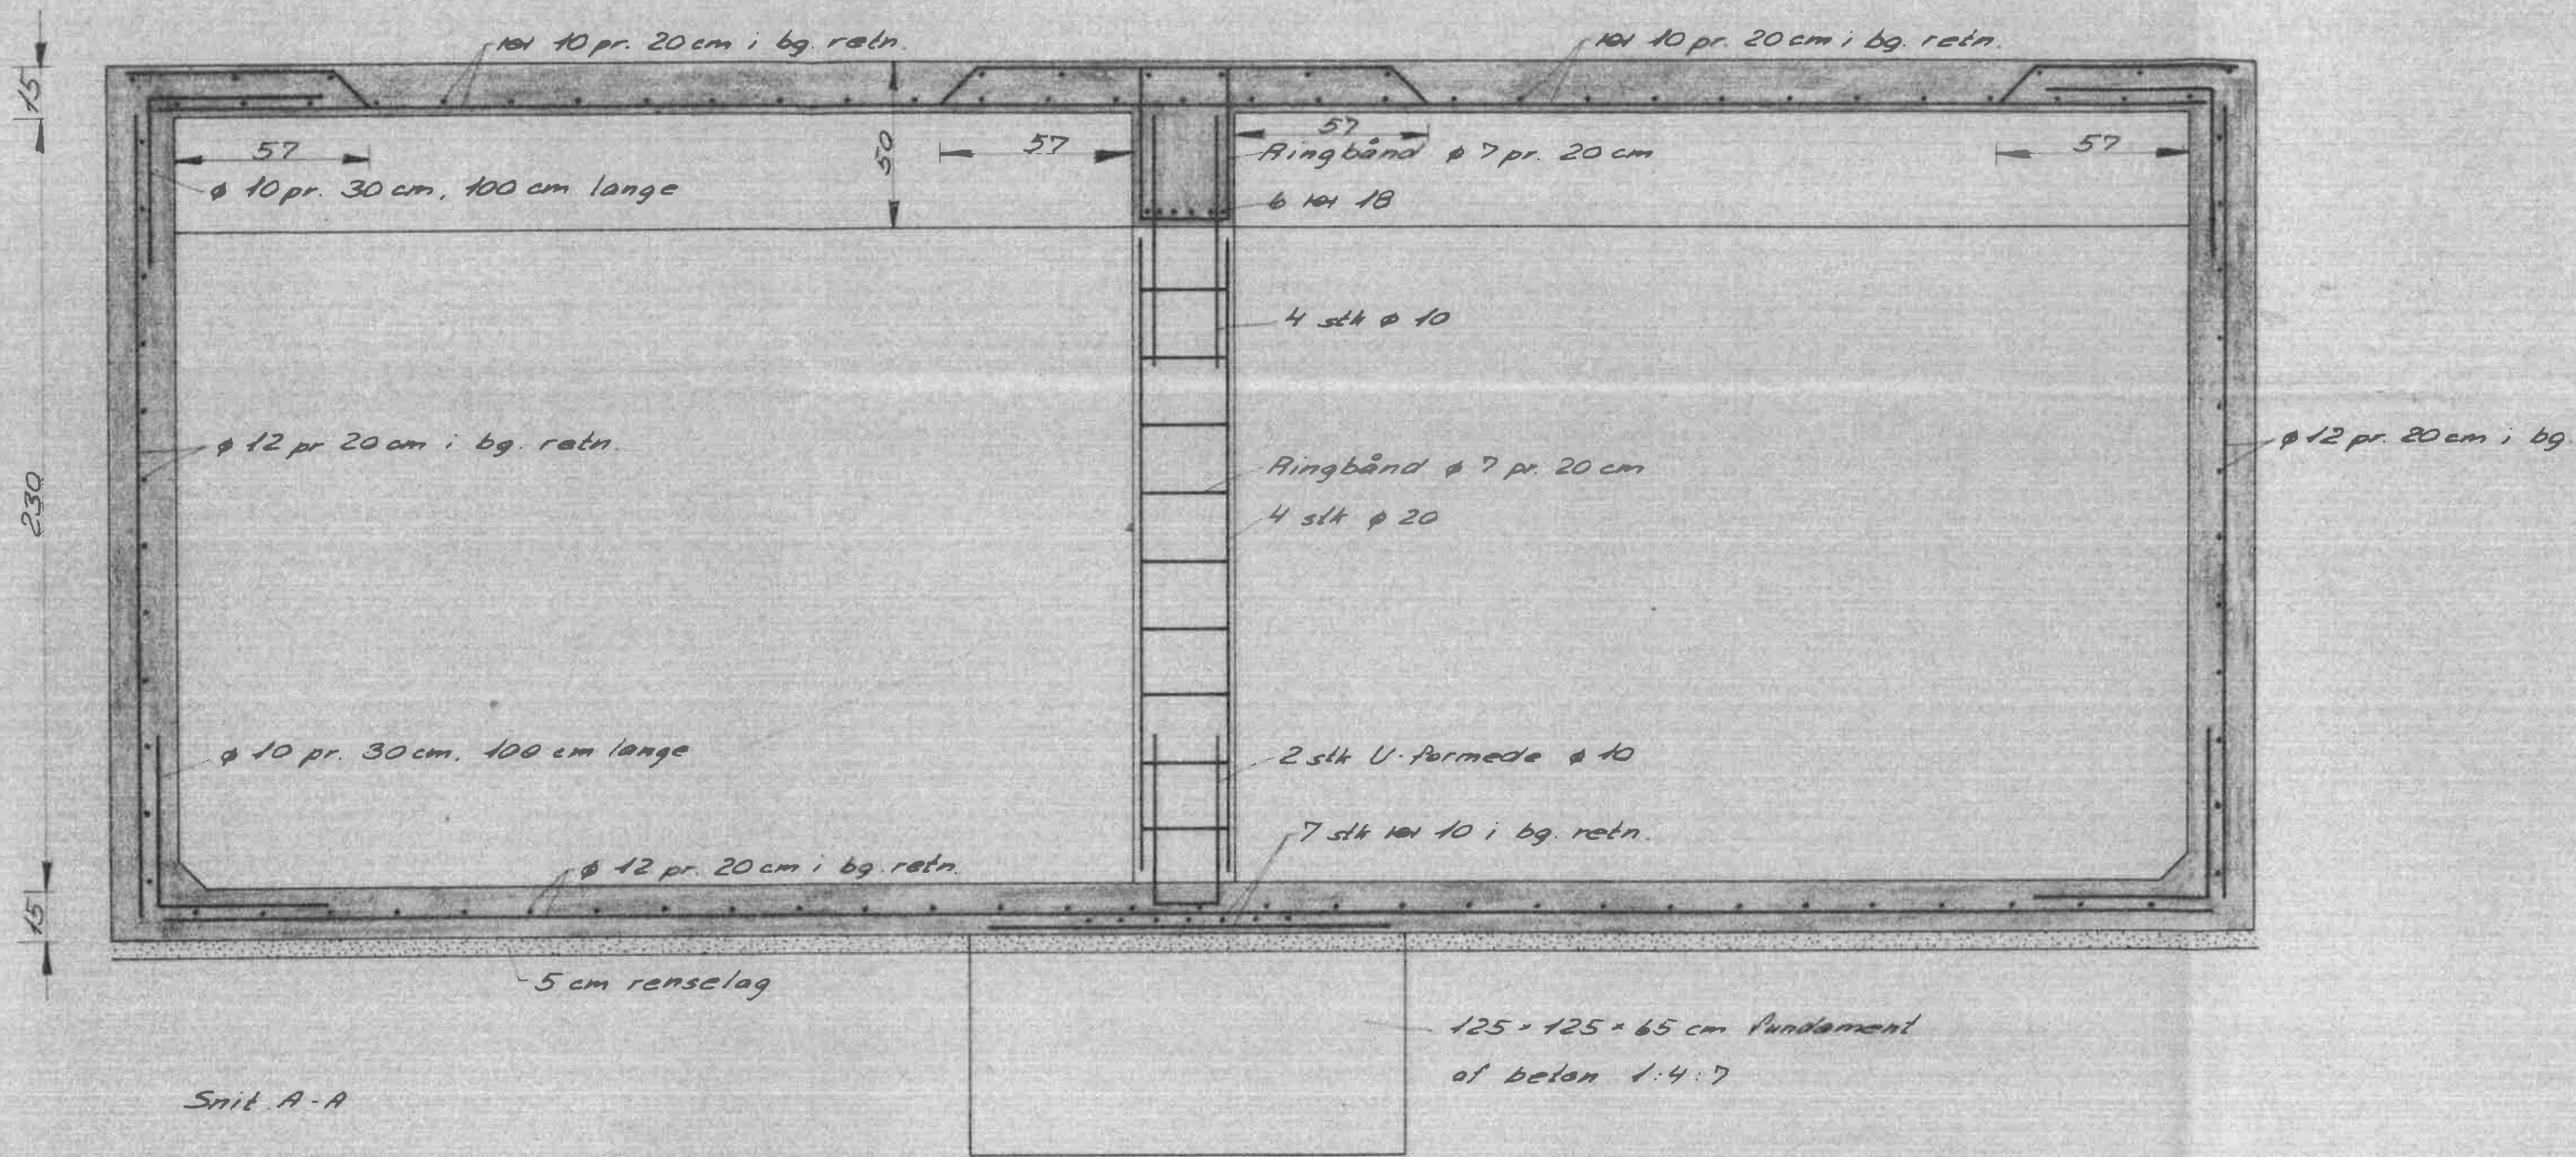 10 pr. 20 cm i bg. retn.
10 pr. 20 cm i bg. retn.
15
57
57
57
57
50
Ringbånd ø 7 pr. 20 cm
ø 10 pr. 30 cm, 100 cm lange
6 18
4 stk ø 10
ø 12 pr 20 cm i bg. retn.
ø 12 pr. 20 cm i bg
Ringbånd ø 7 pr. 20 cm
230
4 stk ø 20
ø 10 pr. 30 cm, 100 cm lange
2 stk U-formede ø 10
7 stk 10 i bg. retn.
ø 12 pr. 20 cm i bg. retn.
15
5 cm renselag
125 × 125 × 65 cm fundament
af beton 1:4:7
Snit A-A